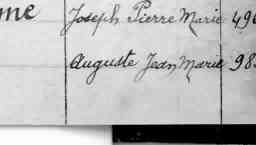 me Joseph Pierre Marie 496
Auguste Jean Marie 983